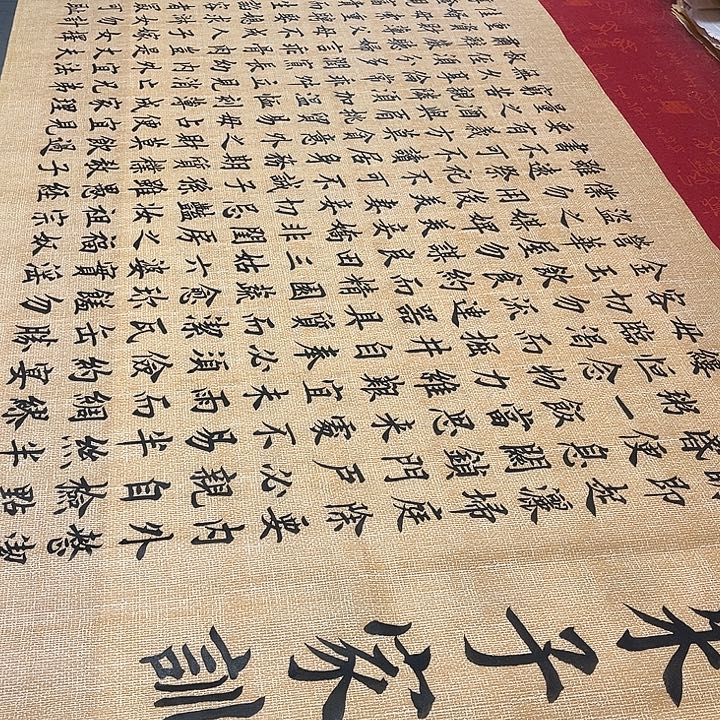 朱子家訓
即起灑掃庭除要內外整潔
昏便息關鎖門戶必親自檢點
粥一飯當思來處不易半絲半
縷恒念物力維艱宜未雨而綢繆
毋臨渴而掘井自奉必須儉約宴
客切勿流連器具質而潔瓦缶勝
金玉飲食約而精園蔬愈珍饈勿
營華屋勿謀良田三姑六婆實淫
盜之媒婢美妾嬌非閨房之福奴
僕勿用俊美妻妾切忌豔妝祖宗
雖遠祭祀不可不誠子孫雖愚經
書不可不讀居身務期質樸教子
要有義方莫貪意外之財莫飲過
量之酒與肩挑貿易毋占便宜見
窮苦親鄰須加溫恤刻薄成家理
無久享倫常乖舛立見消亡兄弟
叔侄須分多潤寡長幼內外宜法